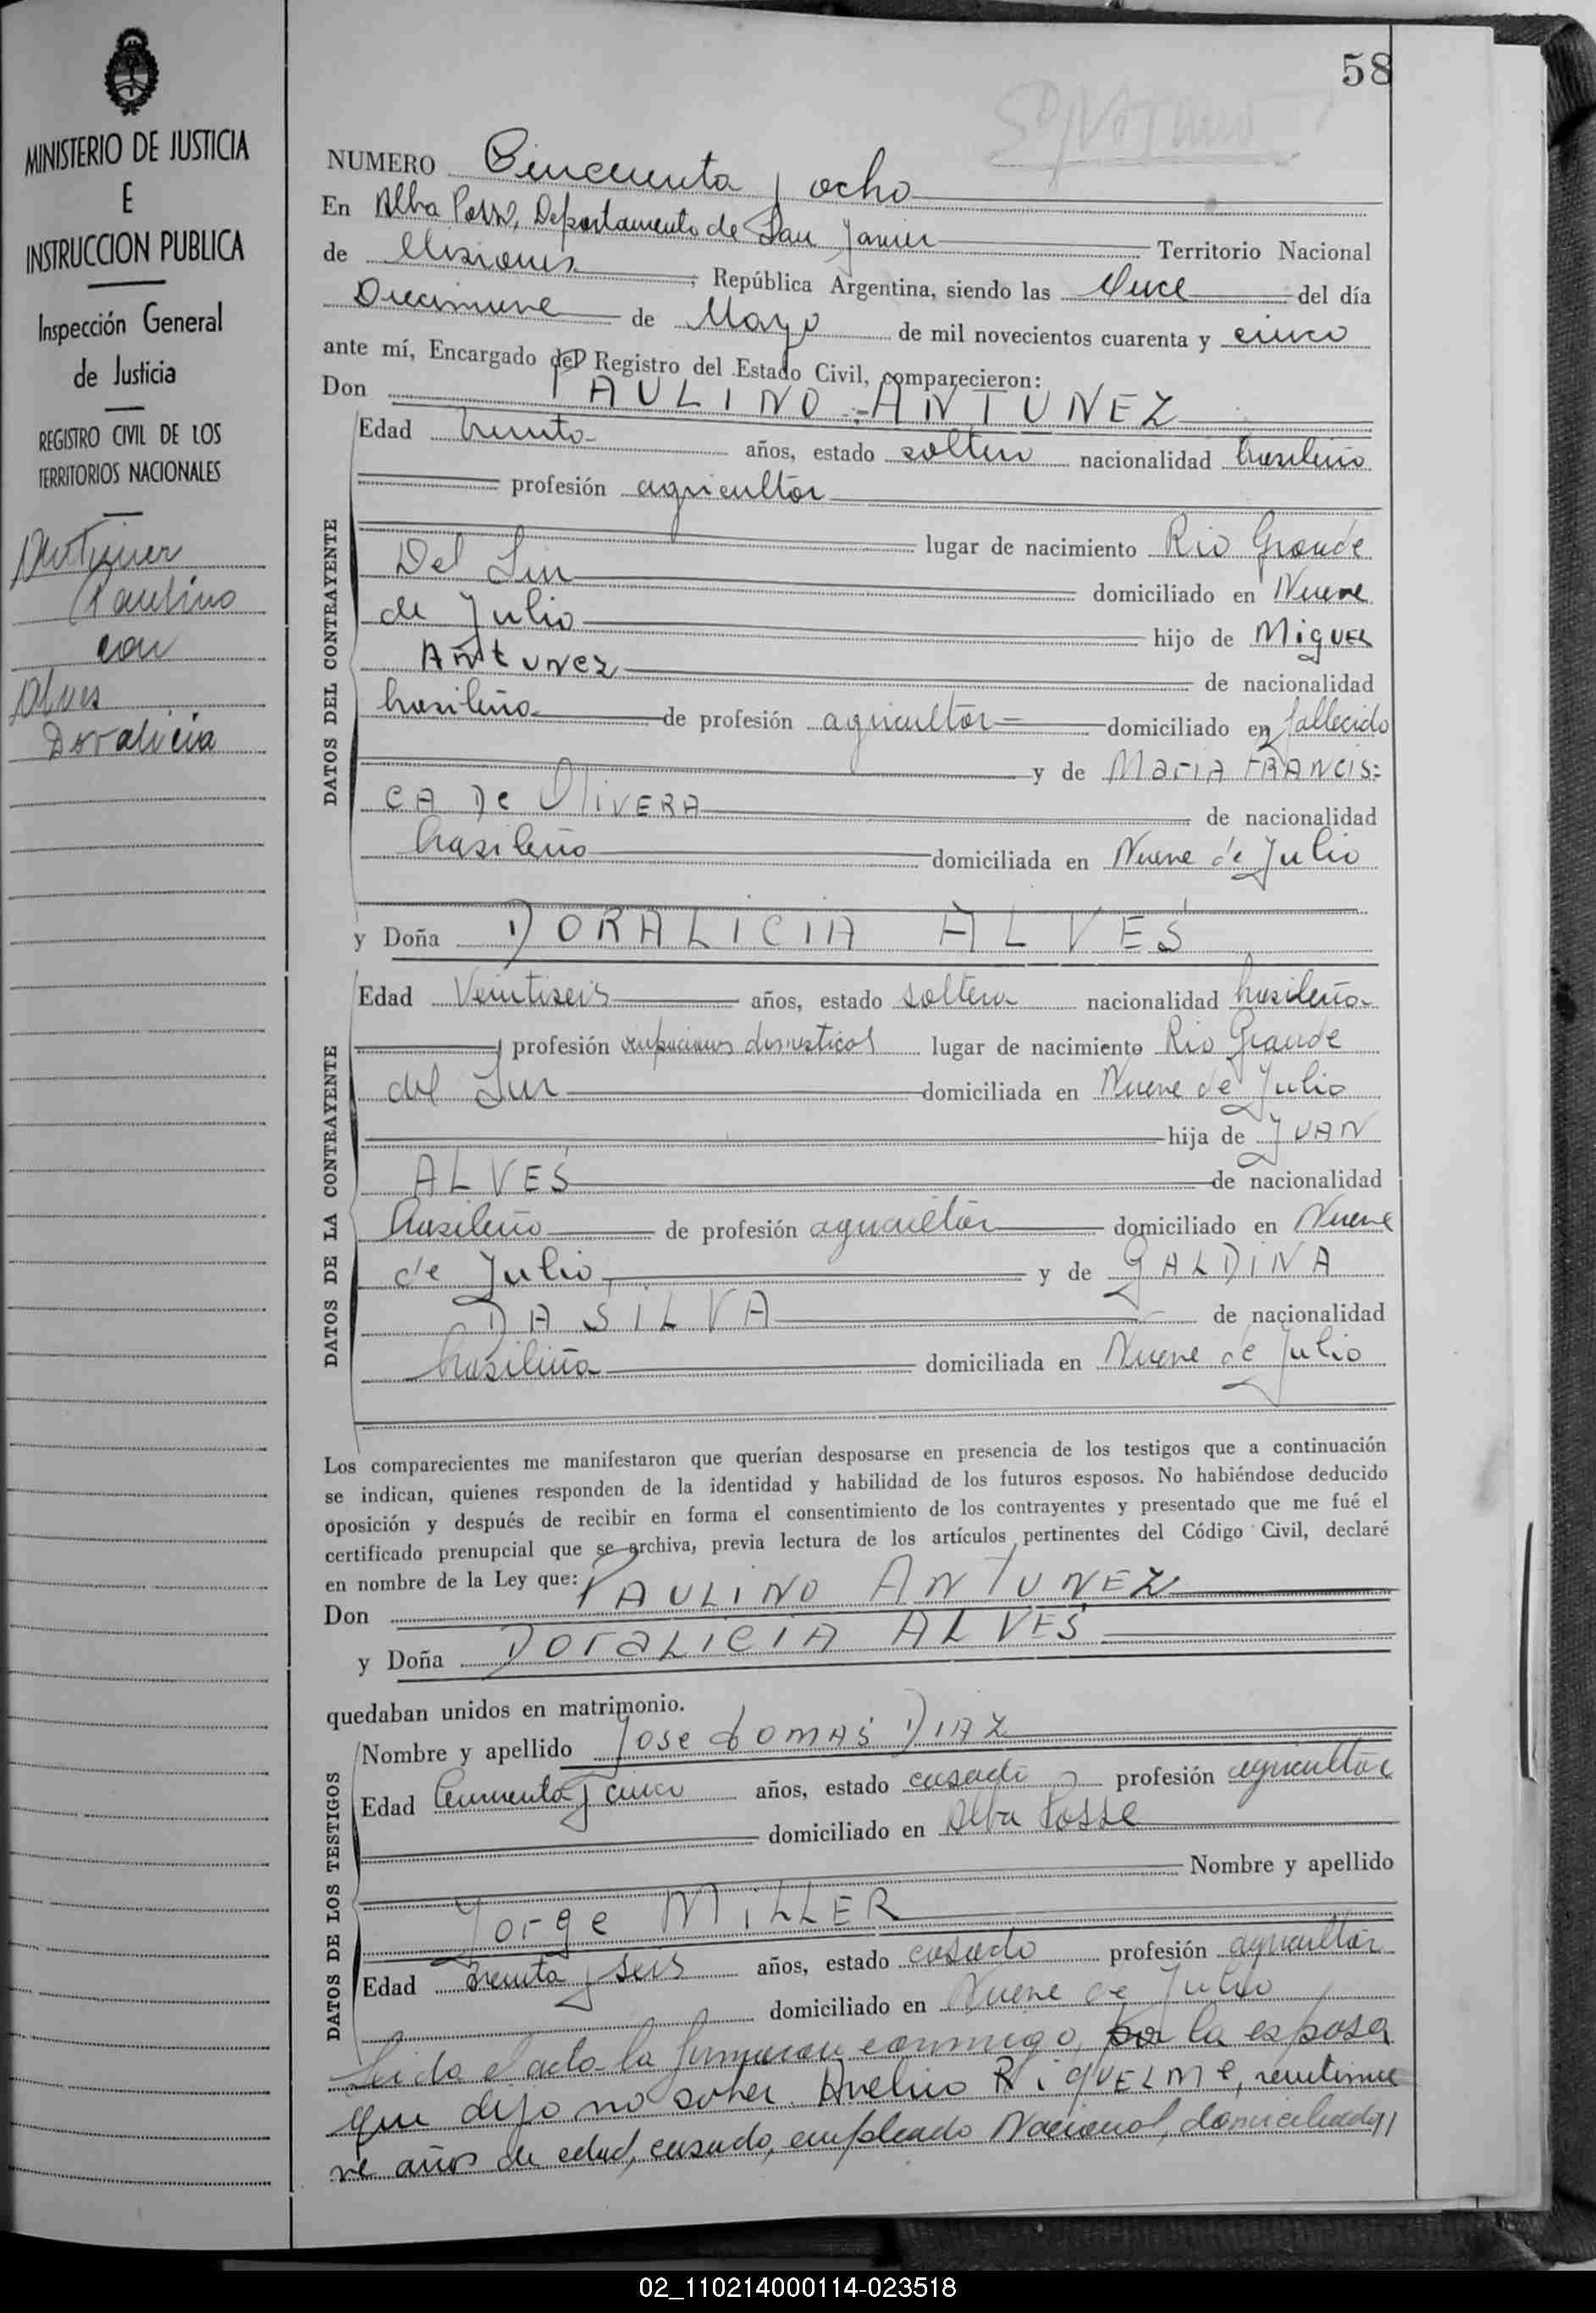 58
MINISTERIO DE JUSTICIA
E
INSTRUCCION PUBLICA
Inspección General
de Justicia
REGISTRO CIVIL DE LOS
TERRITORIOS NACIONALES
Antunez
Paulino
con
Alves
Doralicia
NUMERO Cincuenta y ocho
En Alba Posse, Departamento de San Javier Territorio Nacional
de Misiones, República Argentina, siendo las once del día
Diecinueve de Mayo de mil novecientos cuarenta y cinco
ante mí, Encargado del Registro del Estado Civil, comparecieron:
Don PAULINO ANTUNEZ
DATOS DEL CONTRAYENTE
Edad treinta años, estado soltero nacionalidad brasileño
profesión agricultor
lugar de nacimiento Rio Grande
Del Sur domiciliado en Nueve
de Julio hijo de MiGUEL
ANtUNez de nacionalidad
brasileño de profesión agricultor domiciliado en fallecido
y de MariA FRANCIS:
CA De OliVERA de nacionalidad
brasileño domiciliada en Nueve de Julio
y Doña DORALICIA ALVES
DATOS DE LA CONTRAYENTE
Edad Veintiseis años, estado soltera nacionalidad brasileña
profesión ocupaciones domesticas lugar de nacimiento Rio Grande
del Sur domiciliada en Nueve de Julio
hija de JUAN
ALVES de nacionalidad
brasileño de profesión agricultor domiciliado en Nueve
de Julio y de GALDINA
DA SILVA de nacionalidad
brasileña domiciliada en Nueve de Julio
Los comparecientes me manifestaron que querían desposarse en presencia de los testigos que a continuación
se indican, quienes responden de la identidad y habilidad de los futuros esposos. No habiéndose deducido
oposición y después de recibir en forma el consentimiento de los contrayentes y presentado que me fué el
certificado prenupcial que se archiva, previa lectura de los artículos pertinentes del Código Civil, declaré
en nombre de la Ley que:
Don PAULINO ANTUNEZ
y Doña DoraLICIA ALVES
quedaban unidos en matrimonio.
DATOS DE LOS TESTIGOS
Nombre y apellido Jose tomAS DIAZ
Edad cincuenta y cinco años, estado casado profesión agricultor
domiciliado en Alba Posse
Nombre y apellido
Jorge MiLLER
Edad treinta y seis años, estado casado profesión agricultor
domiciliado en Nueve de Julio
Leida el acta la firmaron conmigo, por la esposa
que dijo no saber. Avelino RiqUELMe, veintinue
ve años de edad, casado, empleado Nacional, domiciliado
02_110214000114-023518